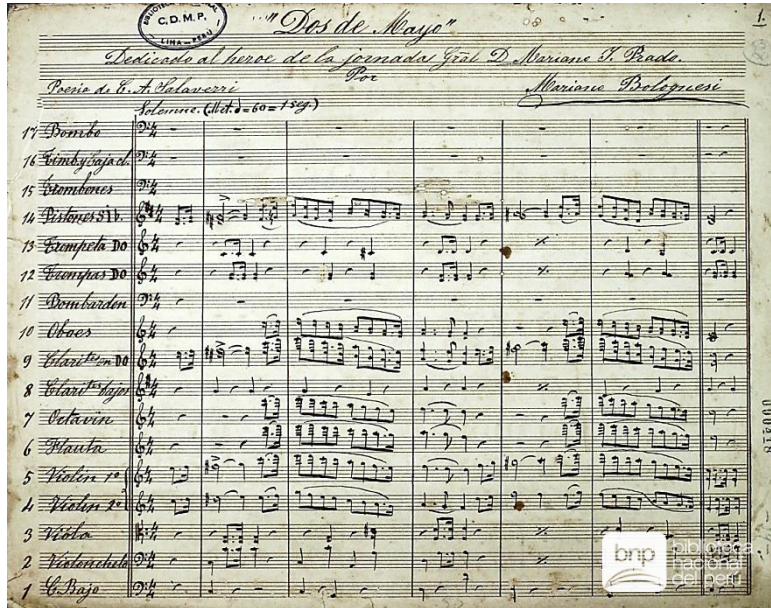 BIBLIOTECA NACIONAL
C.D.M.P.
LIMA - PERU
"Dos de Mayo"
1.
Dedicado al heroe de la jornada Gral D. Mariano I. Prado.
Por
Poesia de C. A. Salaverri
Mariano Bolognesi
Solemne. (Met. = 60 = 1 seg.)
17 Bombo
16 Timb y caja cl.
15 Trombones
14 Pistones Si b.
13 Trompeta DO
12 Trompas DO
11 Bombardon
10 Oboes
9 Clarites en DO
8 Clarites bajos
7 Octavin
6 Flauta
5 Violin 1o
4 Violin 2o
3 Viola
2 Violonchelo
1 C. Bajo
bnp biblioteca
nacional
del perú